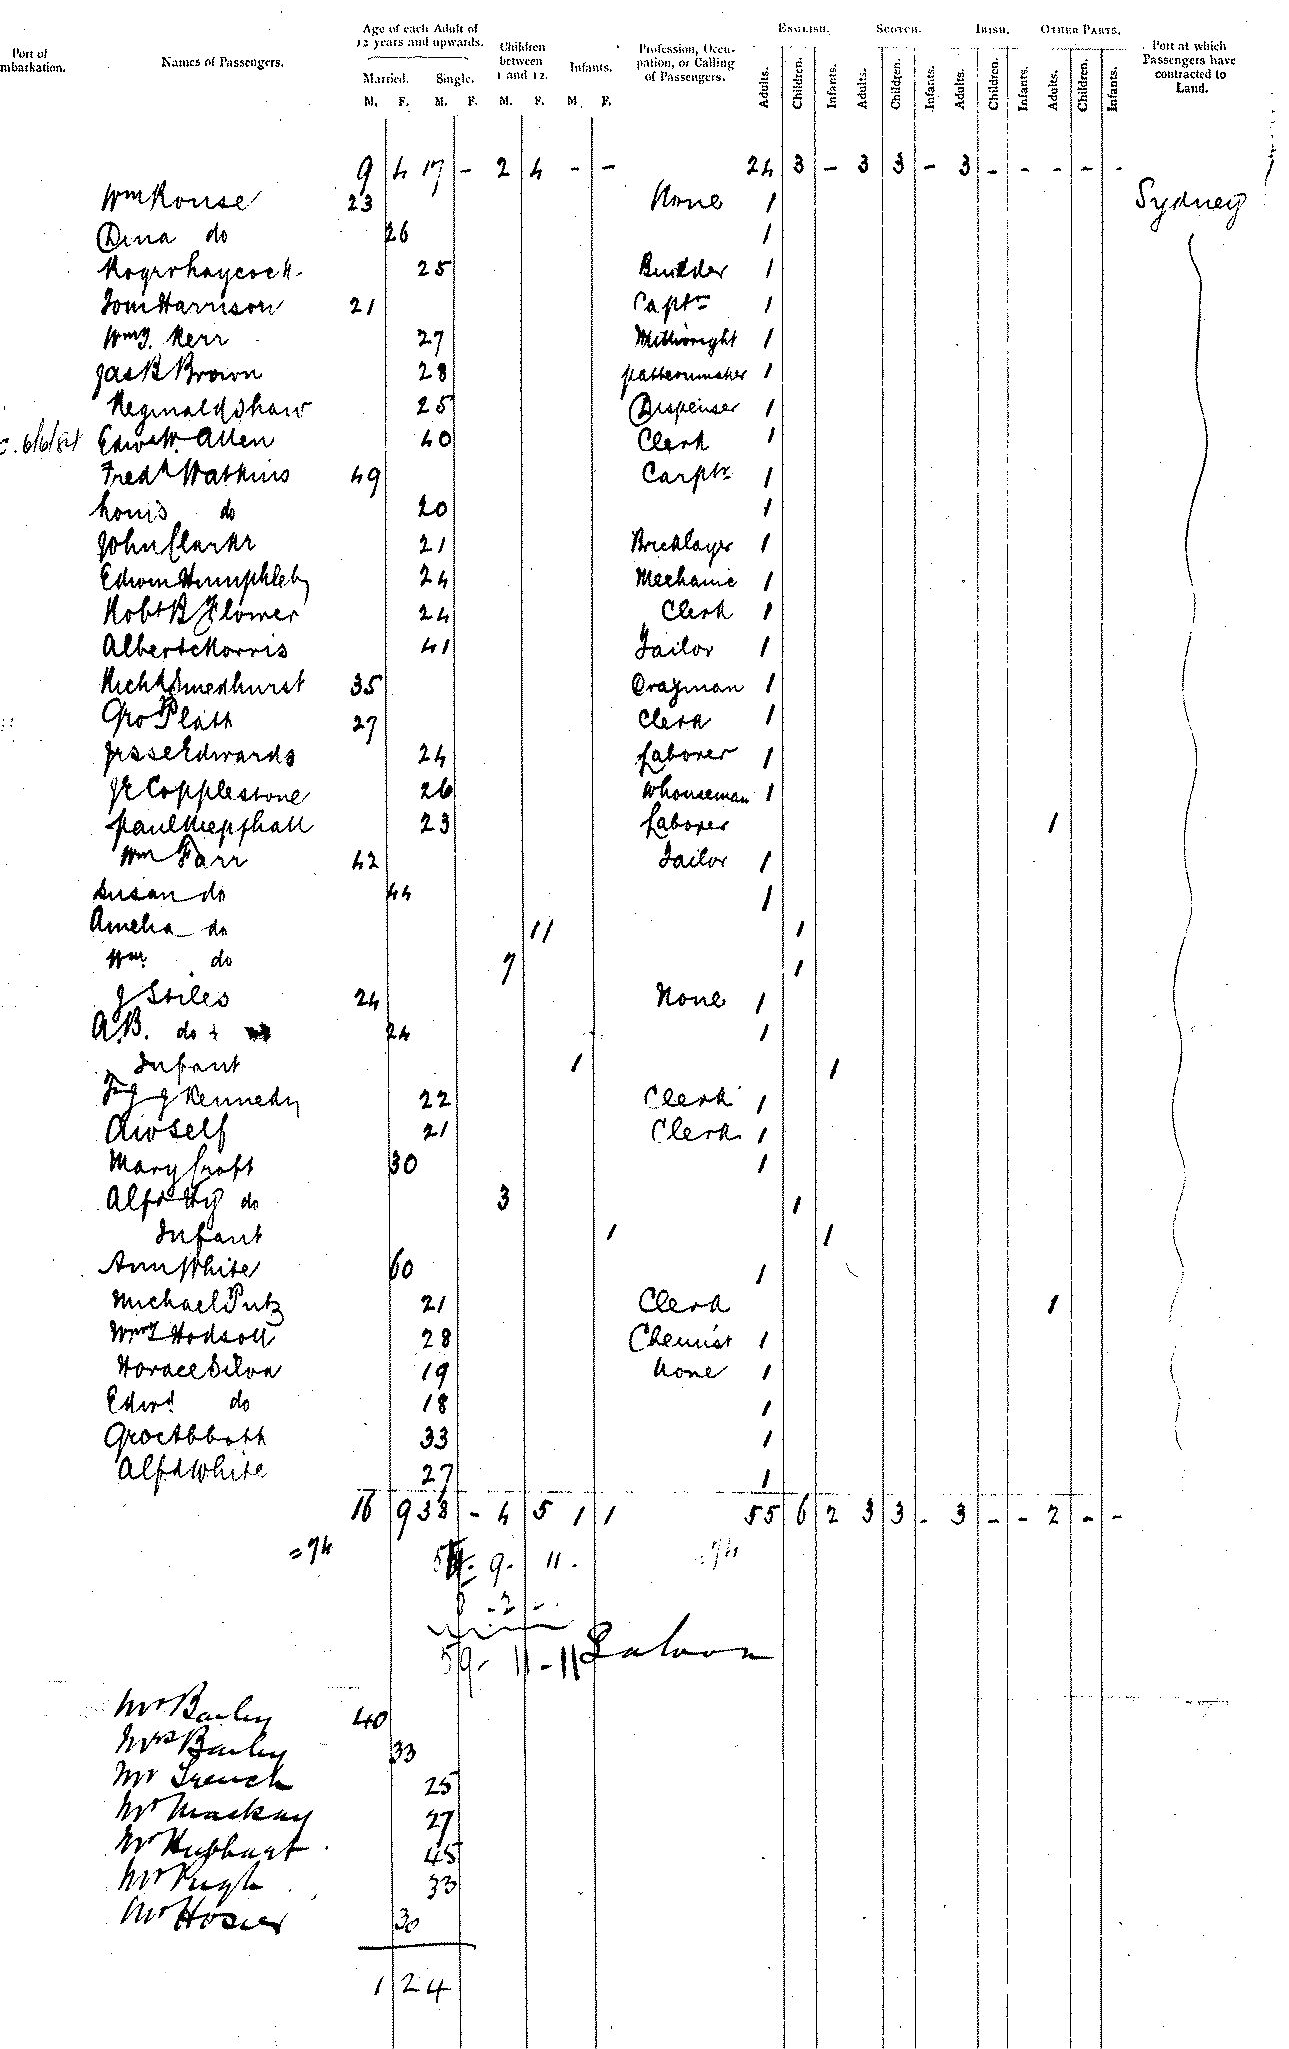 Port of
mbarkation.
Names of Passengers.
Age of each Adult of
12 years and upwards.
Married. Single.
M. F. M. F.
Children
between
1 and 12.
M. F.
Infants.
M F.
Profession, Occu-
pation, or Calling
of Passengers.
ENGLISH. SCOTCH. IRISH. OTHER PARTS.
Adults. Children. Infants. Adults. Children. Infants. Adults. Children. Infants. Adults. Children. Infants.
Port at which
Passengers have
contracted to
Land.
9 4 17 - 2 4 - - 24 3 - 3 3 - 3 - - - - -
Wm Rouse 23 None 1 Sydney
Dina do 26 1
Roger Haycock 25 Builder 1
Tom Harrison 21 Captn 1
Wm J. Kerr 27 Millwright 1
Jas B Brown 28 patternmaker 1
Reginald Shaw 25 Dispenser 1
6/6/84 Edw W. Allen 40 Clerk 1
Fredk Watkins 49 Carptr 1
Louis do 20 1
John Clarke 21 Bricklayer 1
Edwin Humphleby 24 Mechanic 1
Robt B Flower 24 Clerk 1
Albert Morris 41 Tailor 1
Richd Smedhurst 35 Drayman 1
Geo Platt 27 Clerk 1
Jesse Edwards 24 Laborer 1
Copplestone 26 Whouseman 1
Paul 23 Laborer 1
Wm Farr 42 Tailor 1
Susan do 44 1
Amelia do 11 1
Wm do 7 1
J Stiles 24 None 1
A.B. do 24 1
Infant 1 1
J Kennedy 22 Clerk 1
Self 21 Clerk 1
Mary Croft 30 1
Alfd Hy do 3 1
Infant 1 1
Ann White 60 1
Michael Putz 21 Clerk 1
Wm Hodsoll 28 Chemist 1
Horace Silva 19 None 1
Edwd do 18 1
Geo Abbott 33 1
Alfd White 27 1
16 9 38 - 4 5 1 1 55 6 2 3 3 - 3 - - 2 - -
=74 9. 11. =74
- 2 -
59 - 11 - 11 Saloon
Mr Bailey 40
Mrs Bailey 33
Mr French 25
Mr Mackay 27
Mr 45
Mr Pugh 33
Mr Hosier 30
1 2 4